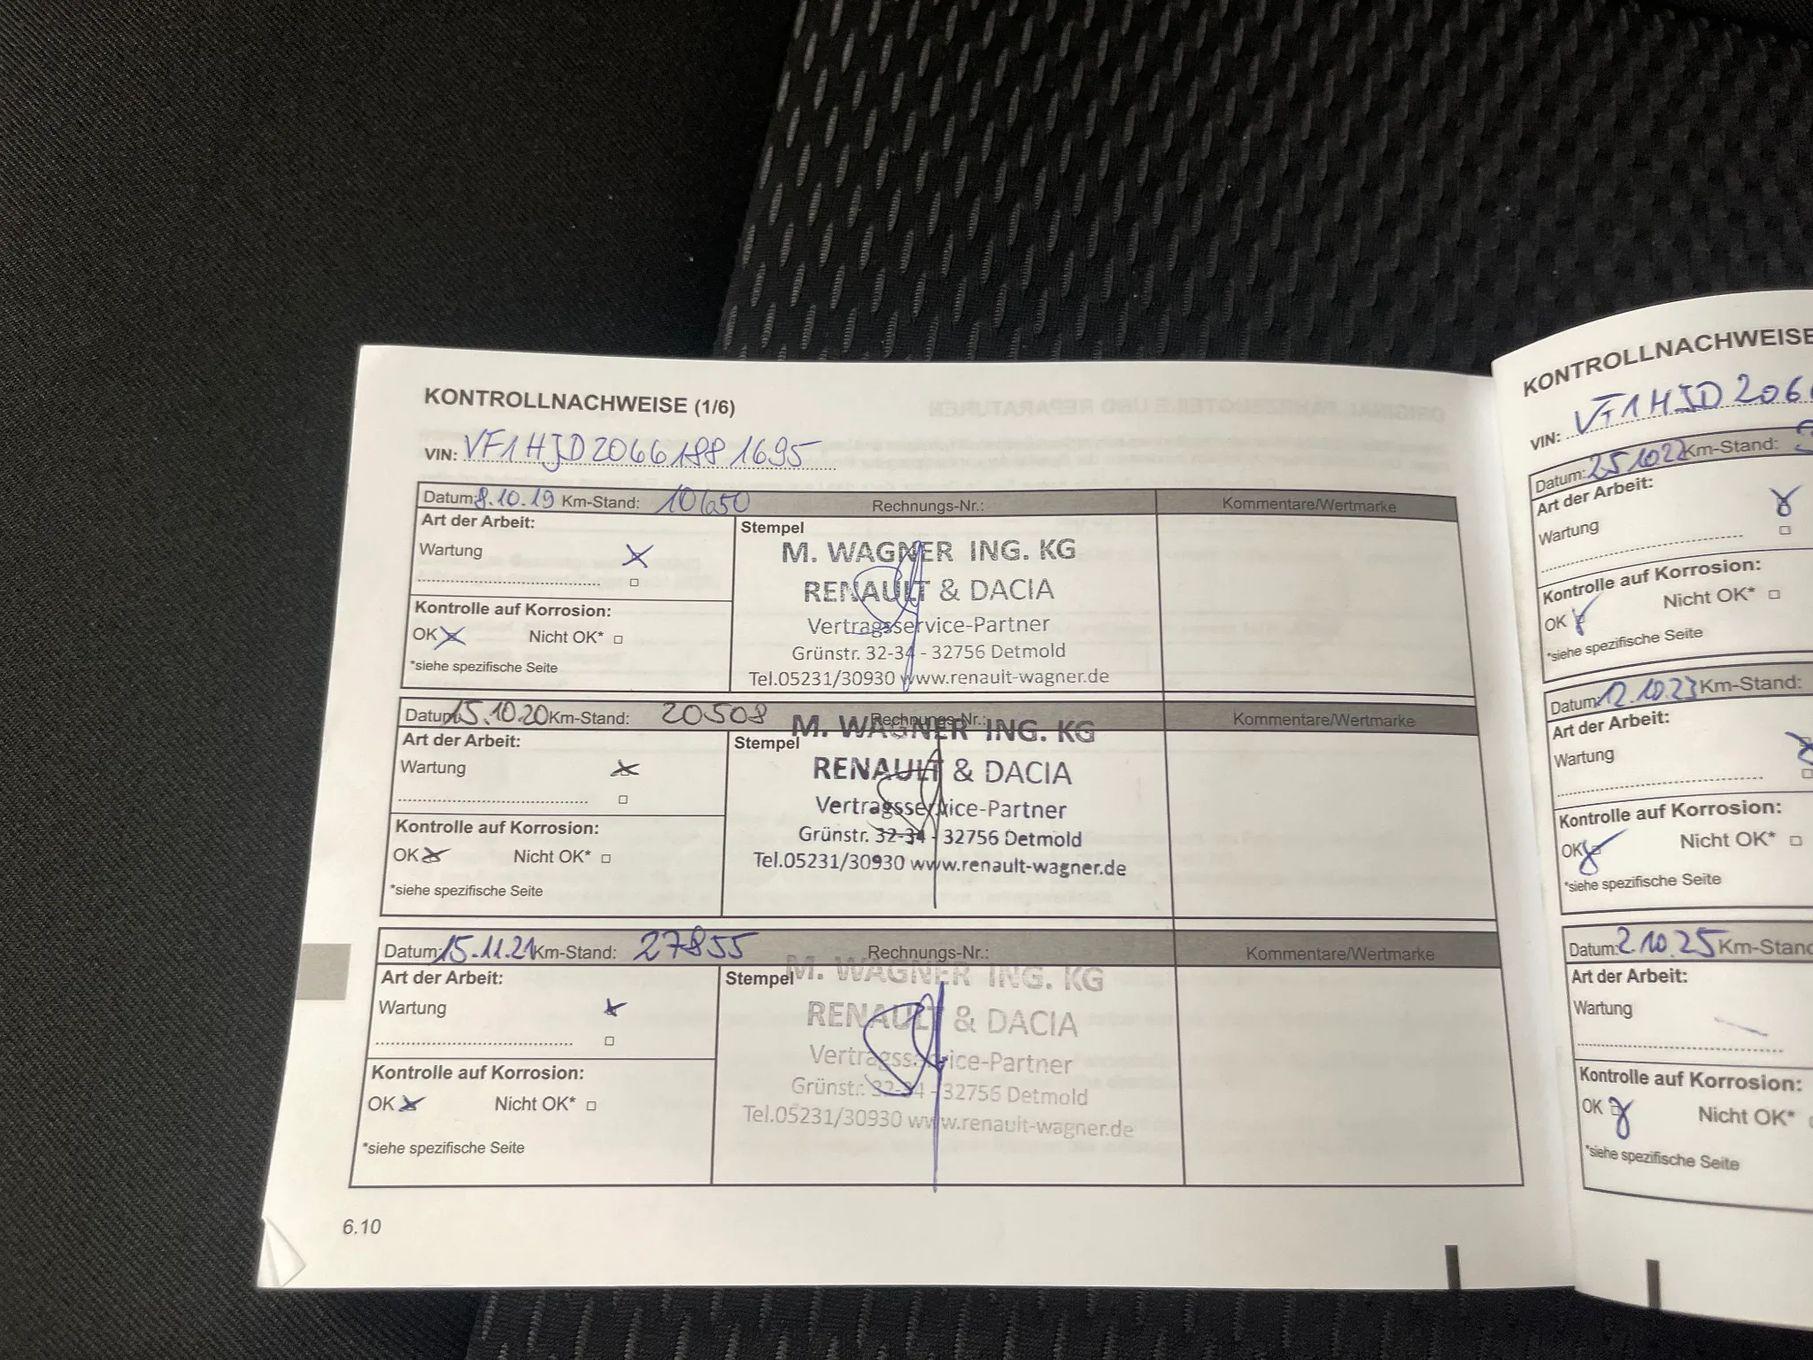 KONTROLLNACHWEISE (1/6)
VIN: VF1HJD20661881695
Datum: 8.10.19 Km-Stand: 10650 Rechnungs-Nr.: Kommentare/Wertmarke
Art der Arbeit:
Wartung
Kontrolle auf Korrosion:
OK Nicht OK*
*siehe spezifische Seite
Stempel
M. WAGNER ING. KG
RENAULT & DACIA
Vertragsservice-Partner
Grünstr. 32-34 - 32756 Detmold
Tel.05231/30930 www.renault-wagner.de
Datum: 15.10.20 Km-Stand: 20508 Rechnungs-Nr.: Kommentare/Wertmarke
Art der Arbeit:
Wartung
Kontrolle auf Korrosion:
OK Nicht OK*
*siehe spezifische Seite
Stempel
M. WAGNER ING. KG
RENAULT & DACIA
Vertragsservice-Partner
Grünstr. 32-34 - 32756 Detmold
Tel.05231/30930 www.renault-wagner.de
Datum: 15.11.21 Km-Stand: 27855 Rechnungs-Nr.: Kommentare/Wertmarke
Art der Arbeit:
Wartung
Kontrolle auf Korrosion:
OK Nicht OK*
*siehe spezifische Seite
Stempel
M. WAGNER ING. KG
RENAULT & DACIA
Vertragsservice-Partner
Grünstr. 32-34 - 32756 Detmold
Tel.05231/30930 www.renault-wagner.de
6.10
KONTROLLNACHWEISE
VIN: VF1HJD206
Datum: 25.10.22 Km-Stand:
Art der Arbeit:
Wartung
Kontrolle auf Korrosion:
OK Nicht OK*
*siehe spezifische Seite
Datum: 12.10.23 Km-Stand:
Art der Arbeit:
Wartung
Kontrolle auf Korrosion:
OK Nicht OK*
*siehe spezifische Seite
Datum: 2.10.25 Km-Stand
Art der Arbeit:
Wartung
Kontrolle auf Korrosion:
OK Nicht OK*
*siehe spezifische Seite